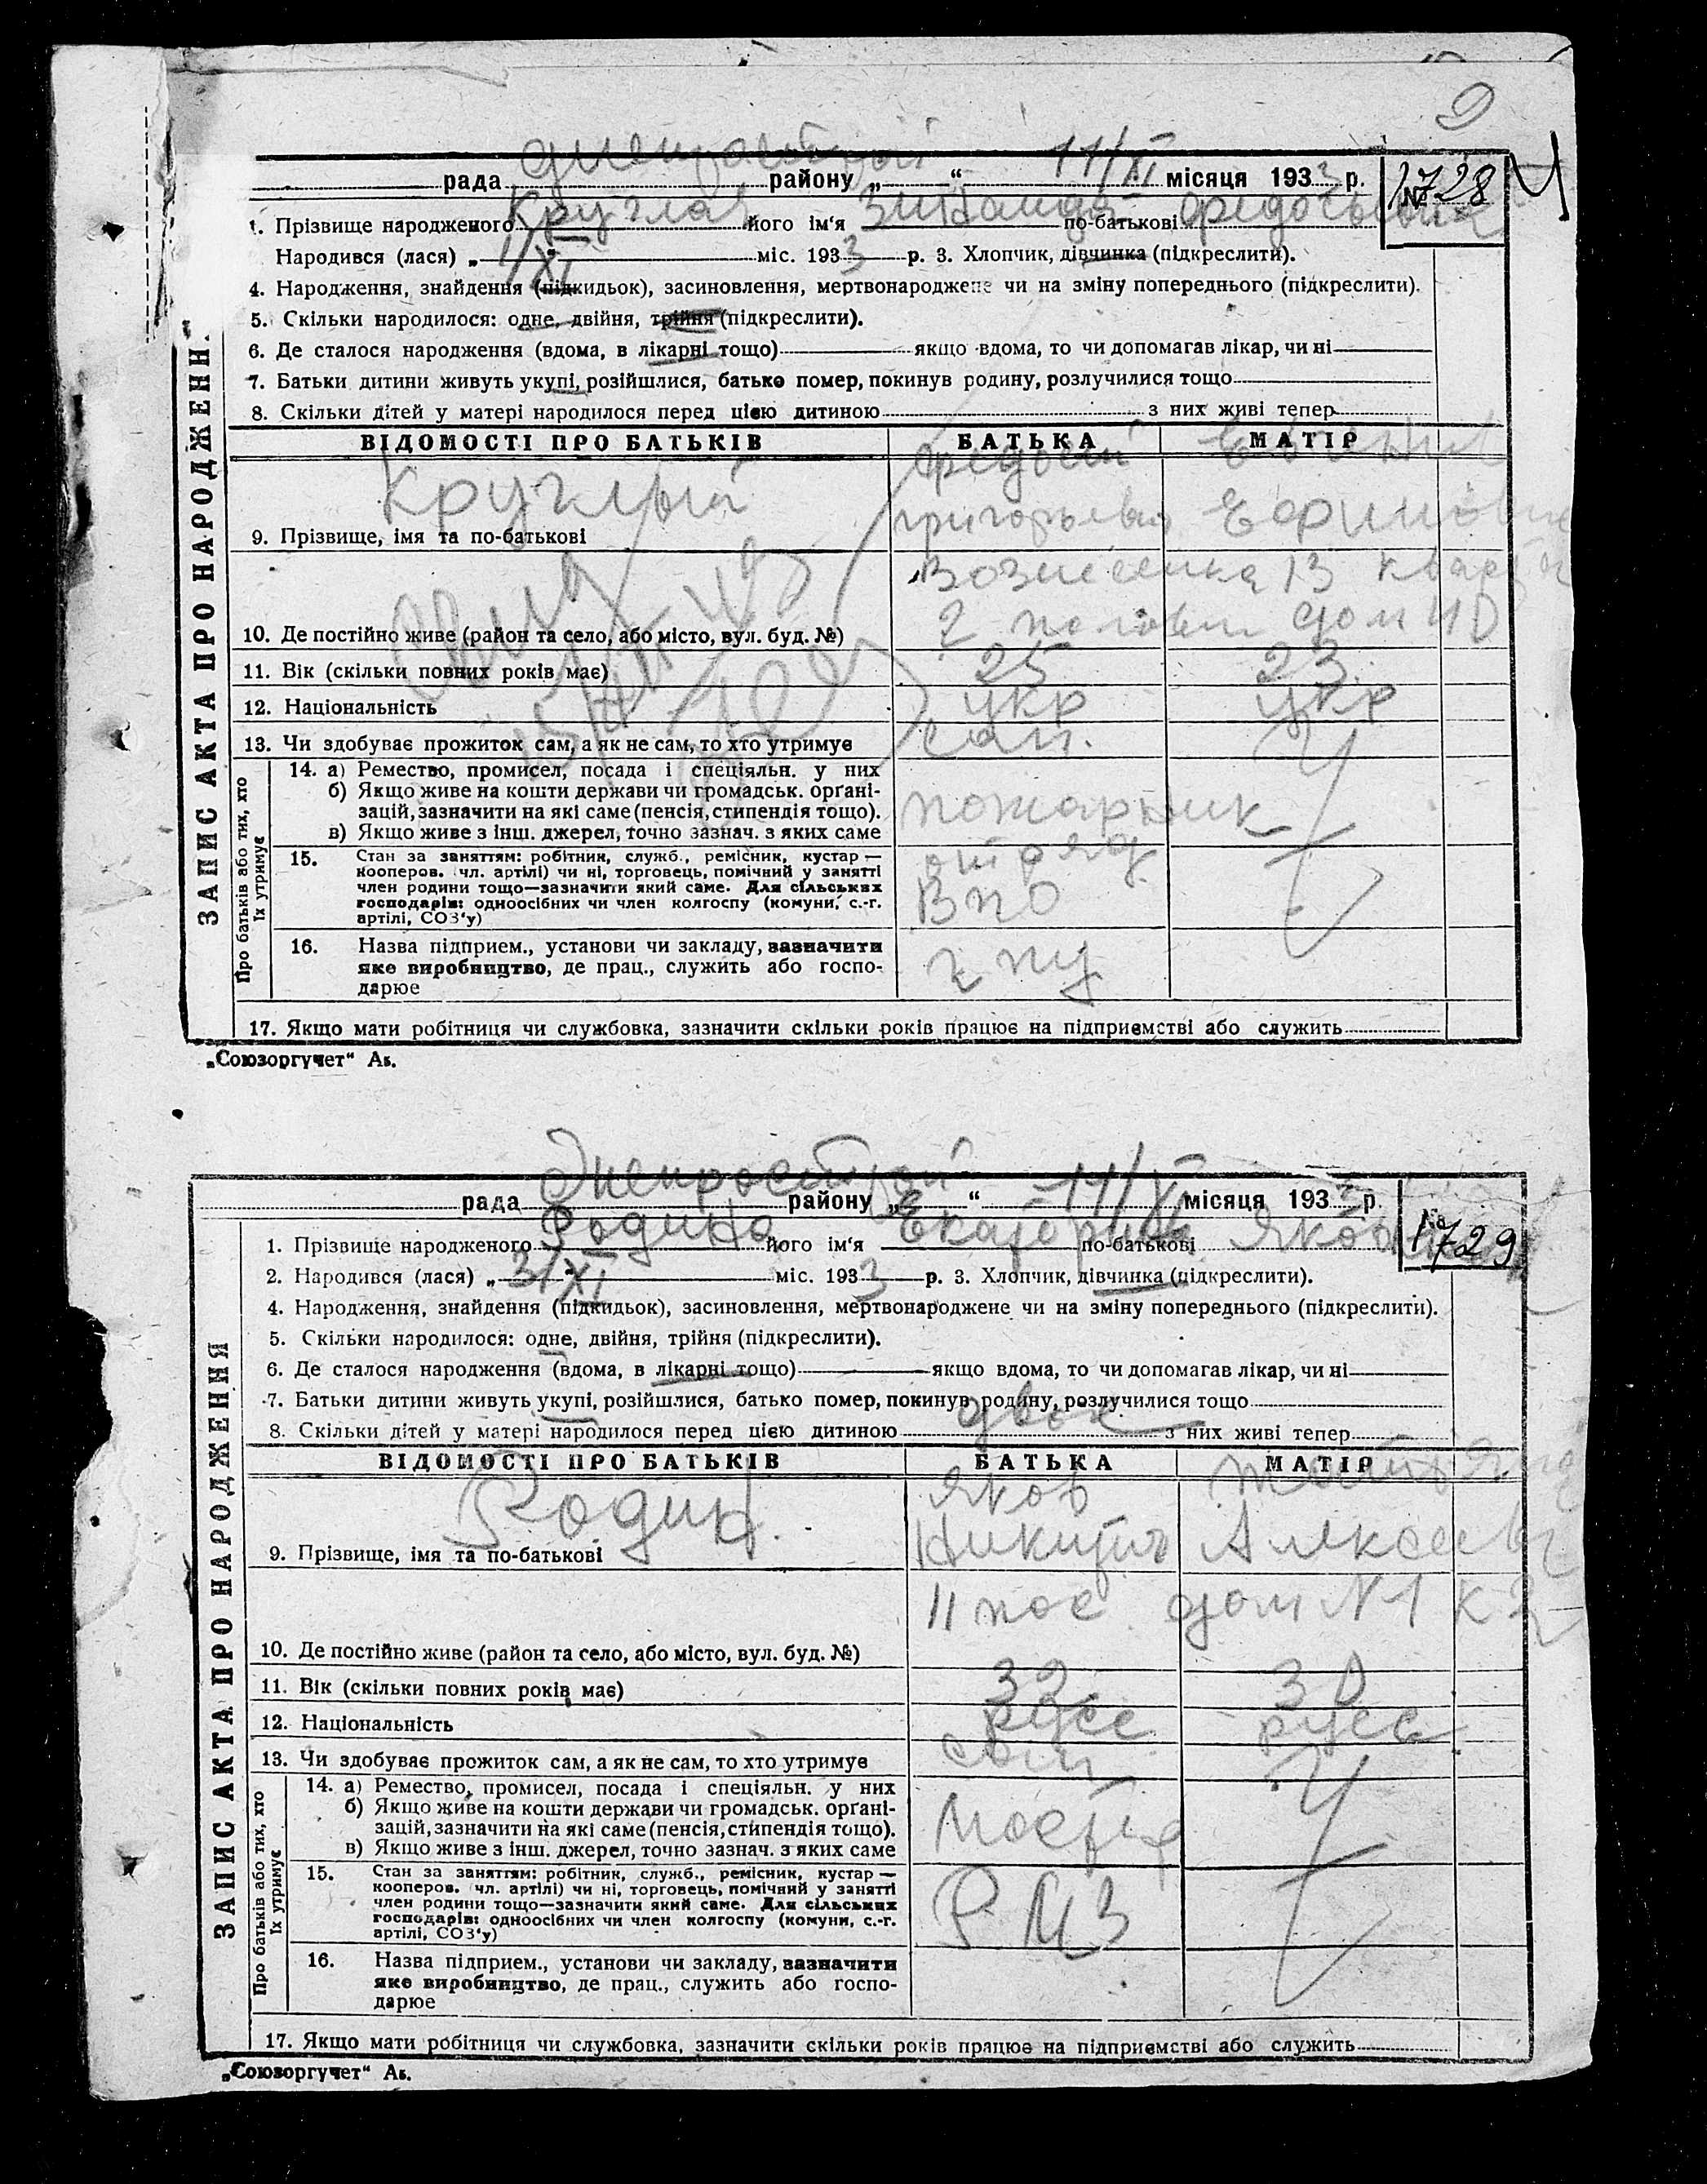 9
Днепрострой 11/XI
рада районy „ “ місяця 1933 р. № 1728
1. Прізвище народженого Круглая його ім‘я Зинаида по-батькові
Народився (лася) „ 1/XI міс. 1933 р. 3. Хлопчик, дівчинка (підкреслити).
4. Народження, знайдення (підкидьок), засиновлення, мертвонароджене чи на зміну попереднього (підкреслити).
5. Скільки народилося: одне, двійня, трійня (підкреслити).
6. Де сталося народження (вдома, в лікарні тощо) якщо вдома, то чи допомагав лікар, чи ні
7. Батьки дитини живуть укупі, розійшлися, батько помер, покинув родину, розлучилися тощо
8. Скільки дітей у матері народилося перед цією дитиною з них живі тепер
ЗАПИС АКТА ПРО НАРОДЖЕНН
ВІДОМОСТІ ПРО БАТЬКІВ БАТЬКА МАТІР
Круглый
9. Прізвище, імя та по-батькові
Вознесенка 13
2 дом 10
10. Де постійно живе (район та село, або місто, вул. буд. №)
11. Вік (скільки повних років має) 25 23
12. Національність укр укр
13. Чи здобуває прожиток сам, а як не сам, то хто утримує сам.
Про батьків або тих, хто їх утримує
14. а) Ремество, промисел, посада і спеціяльн. у них
б) Якщо живе на кошти держави чи громадськ. орґані-
зацій, зазначити на які саме (пенсія, стипендія тощо). пожарник
в) Якщо живе з інш. джерел, точно зазнач. з яких саме
15. Стан за заняттям: робітник, служб., ремісник, кустар — отряд
кооперов. чл. артілі) чи ні, торговець, помічний у занятті
член родини тощо—зазначити який саме. Для сільських ВПО
господарів: одноосібних чи член колгоспу (комуни, с.-г.
артілі, СОЗ‘у)
16. Назва підприєм., установи чи закладу, зазначити
яке виробництво, де прац., служить або госпо- гпу
дарює
17. Якщо мати робітниця чи службовка, зазначити скільки років працює на підприємстві або служить
„Союзоргучет“ Аь.
Днепрострой 11/XI
рада районy „ “ місяця 1933 р. № 1729
1. Прізвище народженого Родина його ім‘я Екатерина по-батькові
2. Народився (лася) „ 3/XI міс. 1933 р. 3. Хлопчик, дівчинка (підкреслити).
4. Народження, знайдення (підкидьок), засиновлення, мертвонароджене чи на зміну попереднього (підкреслити).
5. Скільки народилося: одне, двійня, трійня (підкреслити).
6. Де сталося народження (вдома, в лікарні тощо) якщо вдома, то чи допомагав лікар, чи ні
7. Батьки дитини живуть укупі, розійшлися, батько помер, покинув родину, розлучилися тощо
8. Скільки дітей у матері народилося перед цією дитиною двое з них живі тепер
ЗАПИС АКТА ПРО НАРОДЖЕННЯ
ВІДОМОСТІ ПРО БАТЬКІВ БАТЬКА МАТІР
Родин Яков
9. Прізвище, імя та по-батькові Никитич
11 пос дом N 1 к 2
10. Де постійно живе (район та село, або місто, вул. буд. №)
11. Вік (скільки повних років має) 32 30
12. Національність русс русс
13. Чи здобуває прожиток сам, а як не сам, то хто утримує сам
Про батьків або тих, хто їх утримує
14. а) Ремество, промисел, посада і спеціяльн. у них
б) Якщо живе на кошти держави чи громадськ. орґані-
зацій, зазначити на які саме (пенсія, стипендія тощо).
в) Якщо живе з інш. джерел, точно зазнач. з яких саме
15. Стан за заняттям: робітник, служб., ремісник, кустар —
кооперов. чл. артілі) чи ні, торговець, помічний у занятті
член родини тощо—зазначити який саме. Для сільських РМЗ
господарів: одноосібних чи член колгоспу (комуни, с.-г.
артілі, СОЗ‘у)
16. Назва підприєм., установи чи закладу, зазначити
яке виробництво, де прац., служить або госпо-
дарює
17. Якщо мати робітниця чи службовка, зазначити скільки років працює на підприємстві або служить
„Союзоргучет“ Аь.